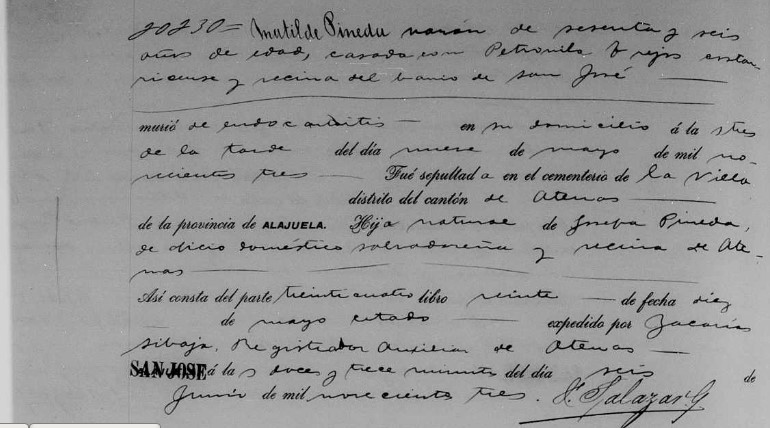 20230= Matilde Pineda varón de sesenta y seis
años de edad, casada con Petronila Trejos costar-
ricense y vecina del barrio de San José
murió de endocarditis en su domicilio á la s tres
de la tarde del día nueve de mayo de mil no-
vecientos tres Fué sepultada en el cementerio de la Villa
distrito del cantón de Atenas
de la provincia de ALAJUELA. Hija natural de Josefa Pineda,
de oficio doméstico salvadoreña y vecina de Ate-
nas
Así consta del parte treinticuatro libro veinte de fecha diez
de mayo citado expedido por Zacarías
Sibaja, Registrador Auxiliar de Atenas
SAN JOSE á las doce y trece minutos del día seis de
Junio de mil novecientos tres. Salazar G